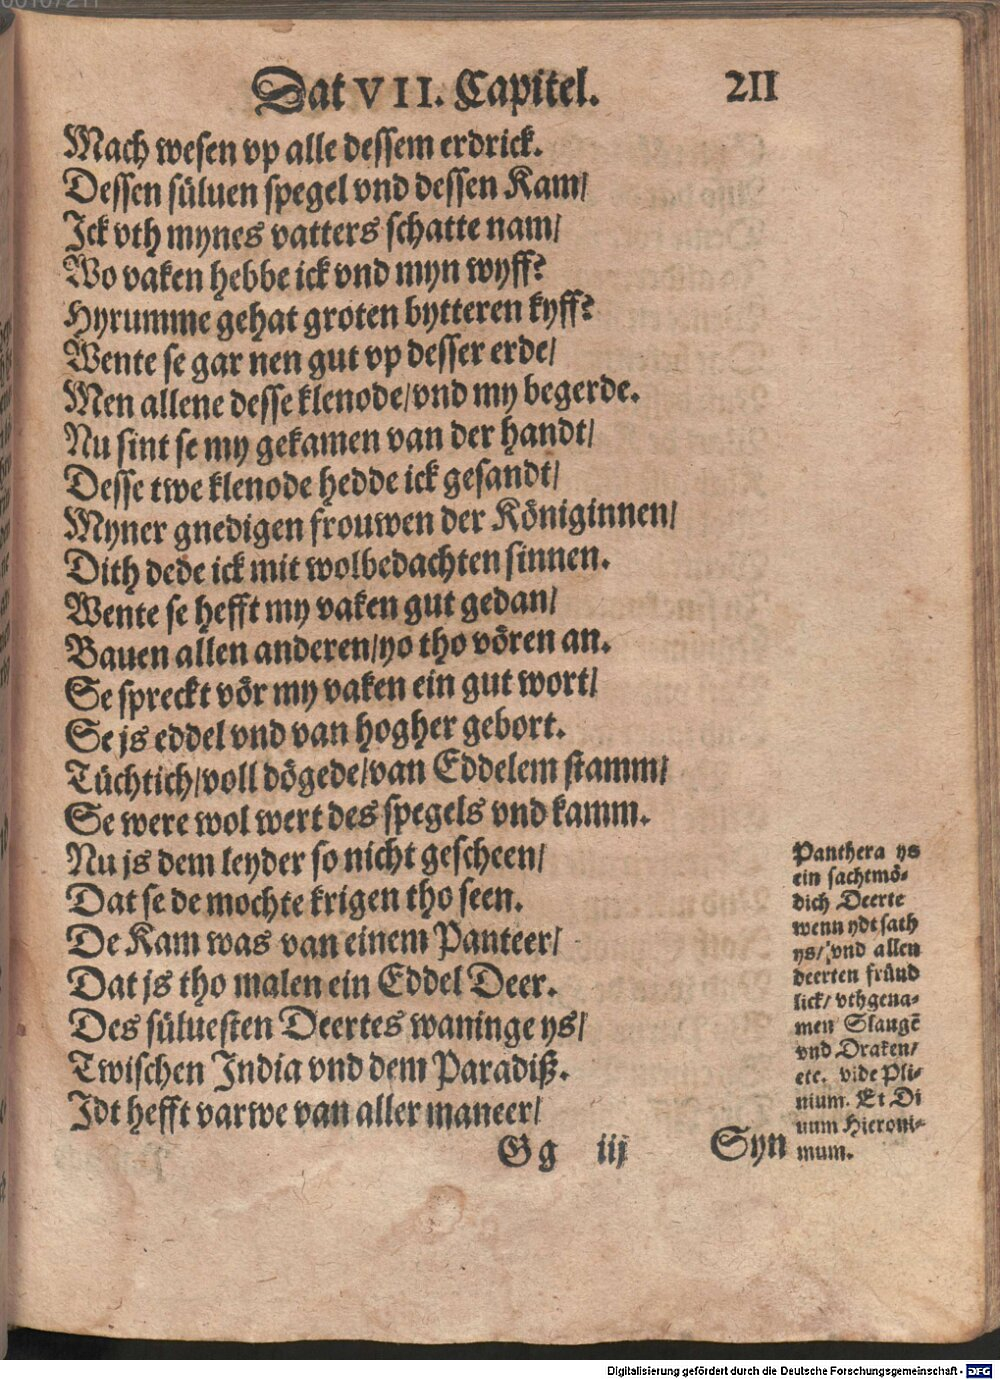 Dat VII. Capitel. 211
Mach wesen vp alle dessem erdrick.
Dessen süluen spegel vnd dessen Kam/
Ick vth mynes vatters schatte nam/
Wo vaken hebbe ick vnd myn wyff?
Hyrumme gehat groten bytteren kyff?
Wente se gar nen gut vp desser erde/
Men allene desse klenode/vnd my begerde.
Nu sint se my gekamen van der handt/
Desse twe klenode hedde ick gesandt/
Myner gnedigen frouwen der Königinnen/
Dith dede ick mit wolbedachten sinnen.
Wente se hefft my vaken gut gedan/
Bauen allen anderen/yo tho vören an.
Se spreckt vör my vaken ein gut wort/
Se js eddel vnd van hogher gebort.
Tüchtich/voll dögede/van Eddelem stamm/
Se were wol wert des spegels vnd kamm.
Nu js dem leyder so nicht gescheen/
Dat se de mochte krigen tho seen.
De Kam was van einem Panteer/
Dat js tho malen ein Eddel Deer.
Des süluesten Deertes waninge ys/
Twischen India vnd dem Paradiß.
Idt hefft varwe van aller maneer/
Gg iij Syn
Panthera ys
ein sachtmö-
dich Deerte
wenn ydt sath
ys/ vnd allen
deerten fründ
lick/ vthgena-
men Slangē
vnd Draken/
etc. vide Pli-
nium. Et Di
uum Hieroni-
mum.
Digitalisierung gefördert durch die Deutsche Forschungsgemeinschaft - DFG